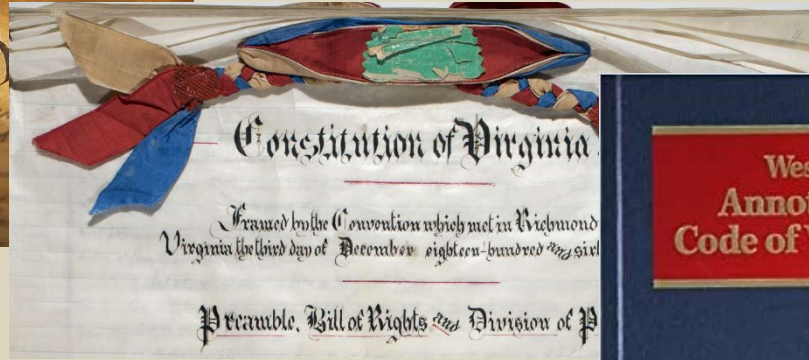 Constitution of Virginia
Framed by the Convention which met in Richmond
Virginia the third day of December eighteen-hundred and
Preamble, Bill of Rights and Division of
Code of